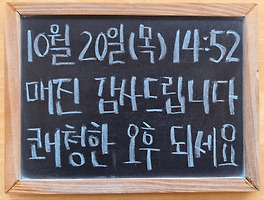 10월 20일(목) 14:52
매진 감사드립니다
쾌청한 오후 되세요